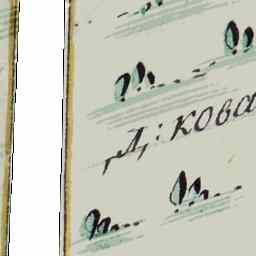 Д: кова